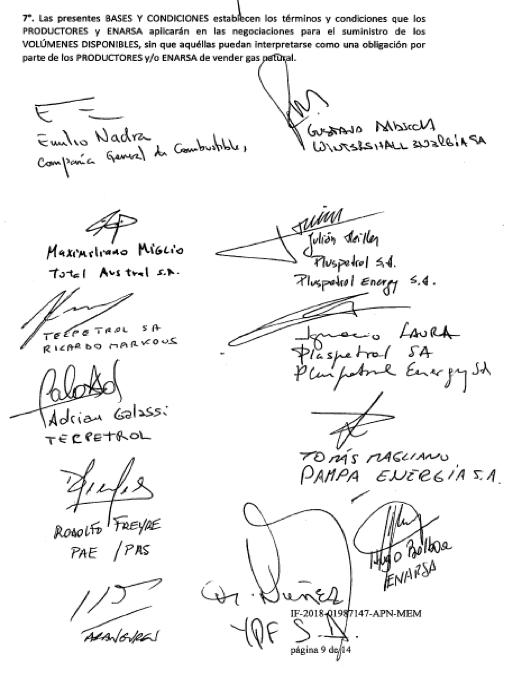 7°. Las presentes BASES Y CONDICIONES establecen los términos y condiciones que los
PRODUCTORES y ENARSA aplicarán en las negociaciones para el suministro de los
VOLÚMENES DISPONIBLES, sin que aquéllas puedan interpretarse como una obligación por
parte de los PRODUCTORES y/o ENARSA de vender gas natural.
Emilio Nadra
Compañía General de Combustible,
GUSTAVO Albrecht
WINTERSHALL ENERGÍA SA
Maximiliano MIGLIO
Total Austral S.A.
Julián
Pluspetrol S.A.
Pluspetrol Energy S.A.
TECPETROL SA
RICARDO MARKOUS
Ignacio LAURA
Pluspetrol SA
Pluspetrol Energy SA
Adrian Galassi
TECPETROL
TOMÁS MAGLIANO
PAMPA ENERGÍA S.A.
RODOLFO FREYRE
PAE / PAS
Hugo Balboa
ENARSA
ARANGUREN
Nuñez
YPF S.A.
IF-2018-01987147-APN-MEM
página 9 de 14